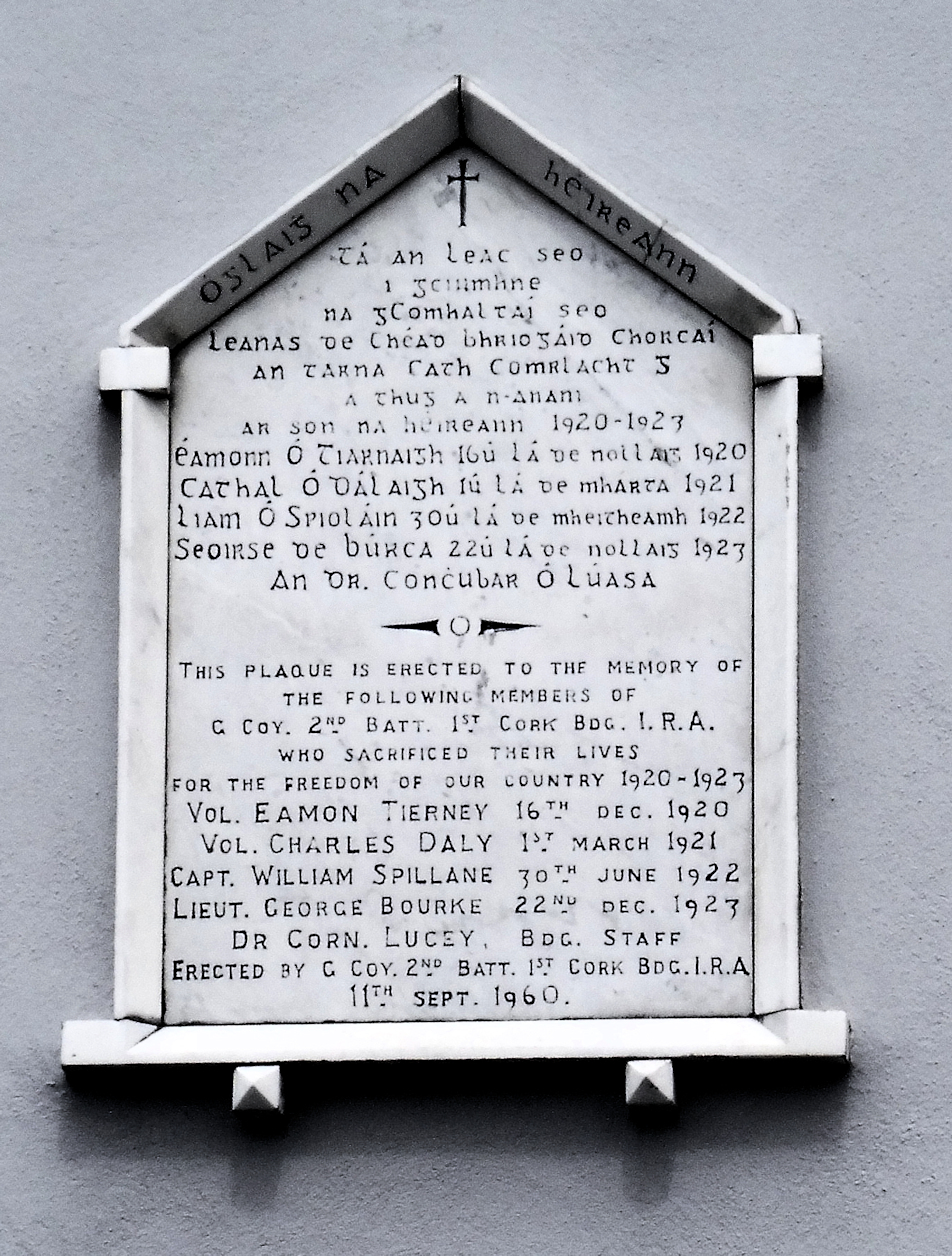 Óglaiġ na hÉireann
Tá an leac seo
i gcuimhne
na gComhaltaí seo
leanas de Chéad Bhriogáid Chorcaí
an tarna Cath Comrlacht G
a thug a n-anam
ar son na hÉireann 1920-1923
Éamonn Ó Tiarnaigh 16ú lá de Nollaig 1920
Cathal Ó Dálaigh 1ú lá de Mhárta 1921
Liam Ó Spioláin 30ú lá de Mheitheamh 1922
Seoirse de Búrca 22ú lá de Nollaig 1923
An Dr. Conċubar Ó Lúasa
THIS PLAQUE IS ERECTED TO THE MEMORY OF
THE FOLLOWING MEMBERS OF
G COY. 2ND BATT. 1ST CORK BDG. I.R.A.
WHO SACRIFICED THEIR LIVES
FOR THE FREEDOM OF OUR COUNTRY 1920-1923
VOL. EAMON TIERNEY 16TH DEC. 1920
VOL. CHARLES DALY 1ST MARCH 1921
CAPT. WILLIAM SPILLANE 30TH JUNE 1922
LIEUT. GEORGE BOURKE 22ND DEC. 1923
DR CORN. LUCEY, BDG. STAFF
ERECTED BY G COY. 2ND BATT. 1ST CORK BDG. I.R.A
11TH SEPT. 1960.